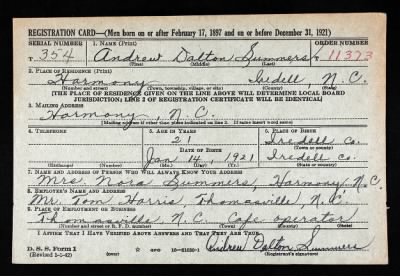 REGISTRATION CARD—(Men born on or after February 17, 1897 and on or before December 31, 1921)
SERIAL NUMBER 1. NAME (Print) ORDER NUMBER
354 Andrew Dalton Summers 11373
(First) (Middle) (Last)
2. PLACE OF RESIDENCE (Print)
Harmony Iredell, N.C.
(Number and street) (Town, township, village, or city) (County) (State)
[THE PLACE OF RESIDENCE GIVEN ON THE LINE ABOVE WILL DETERMINE LOCAL BOARD
JURISDICTION; LINE 2 OF REGISTRATION CERTIFICATE WILL BE IDENTICAL]
3. MAILING ADDRESS
Harmony, N.C.
[Mailing address if other than place indicated on line 2. If same insert word same]
4. TELEPHONE 5. AGE IN YEARS 6. PLACE OF BIRTH
21 Iredell Co.
DATE OF BIRTH (Town or county)
Jan 14, 1921 Iredell Co.
(Exchange) (Number) (Mo.) (Day) (Yr.) (State or country)
7. NAME AND ADDRESS OF PERSON WHO WILL ALWAYS KNOW YOUR ADDRESS
Mrs Nora Summers, Harmony, N.C.
8. EMPLOYER'S NAME AND ADDRESS
Mr. Tom Harris, Thomasville, N.C.
9. PLACE OF EMPLOYMENT OR BUSINESS
Thomasville N.C. Cafe operator
(Number and street or R. F. D. number) (Town) (County) (State)
I AFFIRM THAT I HAVE VERIFIED ABOVE ANSWERS AND THAT THEY ARE TRUE.
D. S. S. Form 1 Andrew Dalton Summers
(Revised 2-1-42) (over) 16—21630-1 (Registrant's signature)